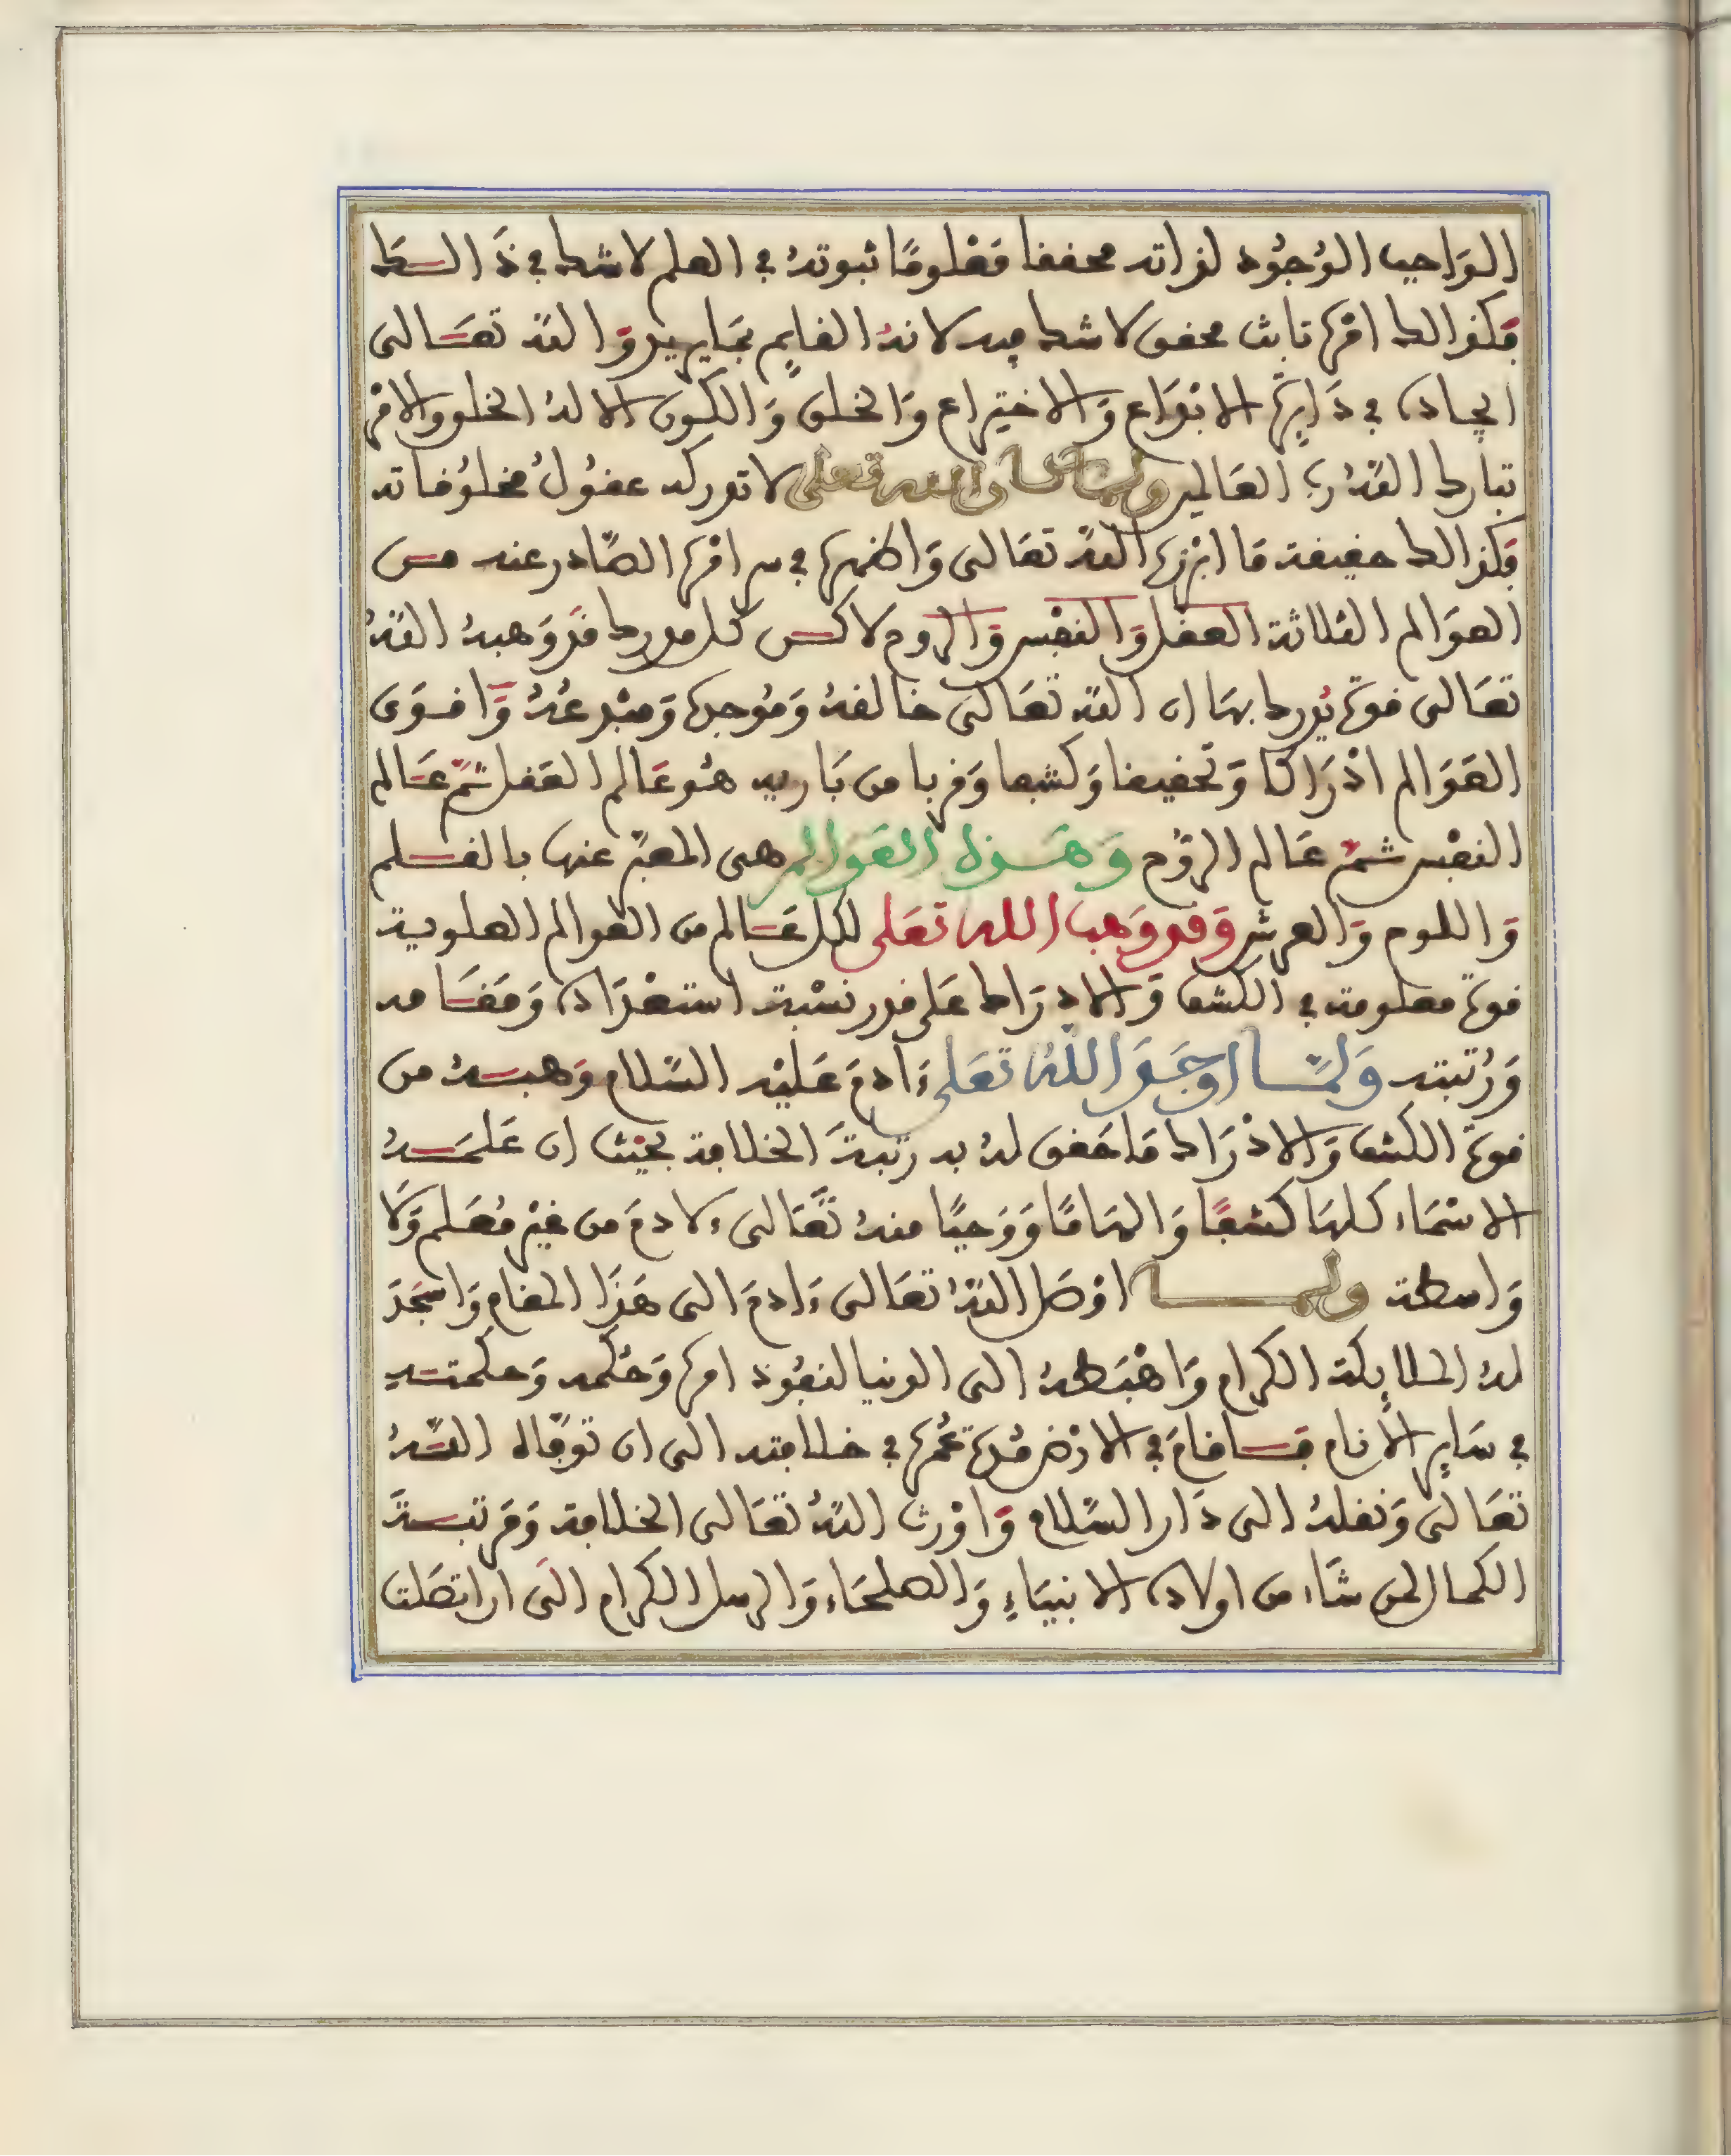 الوَاجب الوُجُود لذاته محققا مَعْلومًا ثبوتهُ في العلم لاشك في ذَالك
فكذالك امْره ثابت محقق لا شك فيه لانهُ القايم بمَا يريد وَاللّه تعَالى
ايجاده في دَايرَة الابْدَاع وَالاختِراع وَالخلق وَالكون الا لهُ الخلق والامْر
تبارك اللّهُ ربّ العَالمين ولمّا كان الله تعلى لا تدركه عقُولُ مخلوُقاته
فكذالك حقيقة مَا ابْرزه اللّه تعَالى وَاظهره في سر امْره الصّادر عنه من
العوَالم الثلاثة العقل وَالنفْس وَالروح لاكن كل مدرك قد وَهبهُ اللّهُ
تعَالى قوة يُدرك بهَا ان اللّه تعَالى خالقهُ وَمُوجده وَمبْدعُهُ وَاقوَى
العَوَالم ادْرَاكا وَتحقيقا وَكشفا وَقربا من بَاريه هُو عَالم العَقل ثمّ عَالم
النفْس ثمّ عَالم الروُح وَهَذه العَوالم هي المعبّر عنها بالقلم
وَاللوح وَالعرش وَقد وَهب الله تعَلى لكل عَالم من العوالم العلوية
قوة معلومة في الكشف وَالادرَاك عَلى قدر نسْبة استعْدَاده وَمَقَامه
وَرُتبته وَلمّا اوجَدَ اللّهُ تعَلى ءَادمَ عَليْه السّلام وَهبهُ من
قوةِ الكشف وَالادْرَاك مَا حَقق لهُ به رتبةَ الخلافة بحيْث ان عَلمَهُ
الاسْمَاء كلهَا كشفًا وَالهَامًا وَوَحيًا منهُ تعَّالى ءلادمَ من غيْر مُعَلم وَلَا
وَاسطة ولما اوْصَل اللّهُ تعَالى ءَادمَ الى هَذَا المقام وَاسْجَدَ
لهُ الملايكة الكرام وَاهْبَطهُ الى الدنيا لنفُوذ امره وَحُكمه وَحكمته
في سَاير الانام فاقامَ في الارْض مُدة عُمره في خلافته الى ان توفّاه اللّهُ
تعَالى وَنقلهُ الى دَار السّلام وَاوْرث اللّهُ تعَالى الخلافة وَمَرتبةَ
الكمال لمن شَاء من اولاده الانبيَاءِ وَالصلحَاء وَالرسل الكرام الى ان اتصَلت